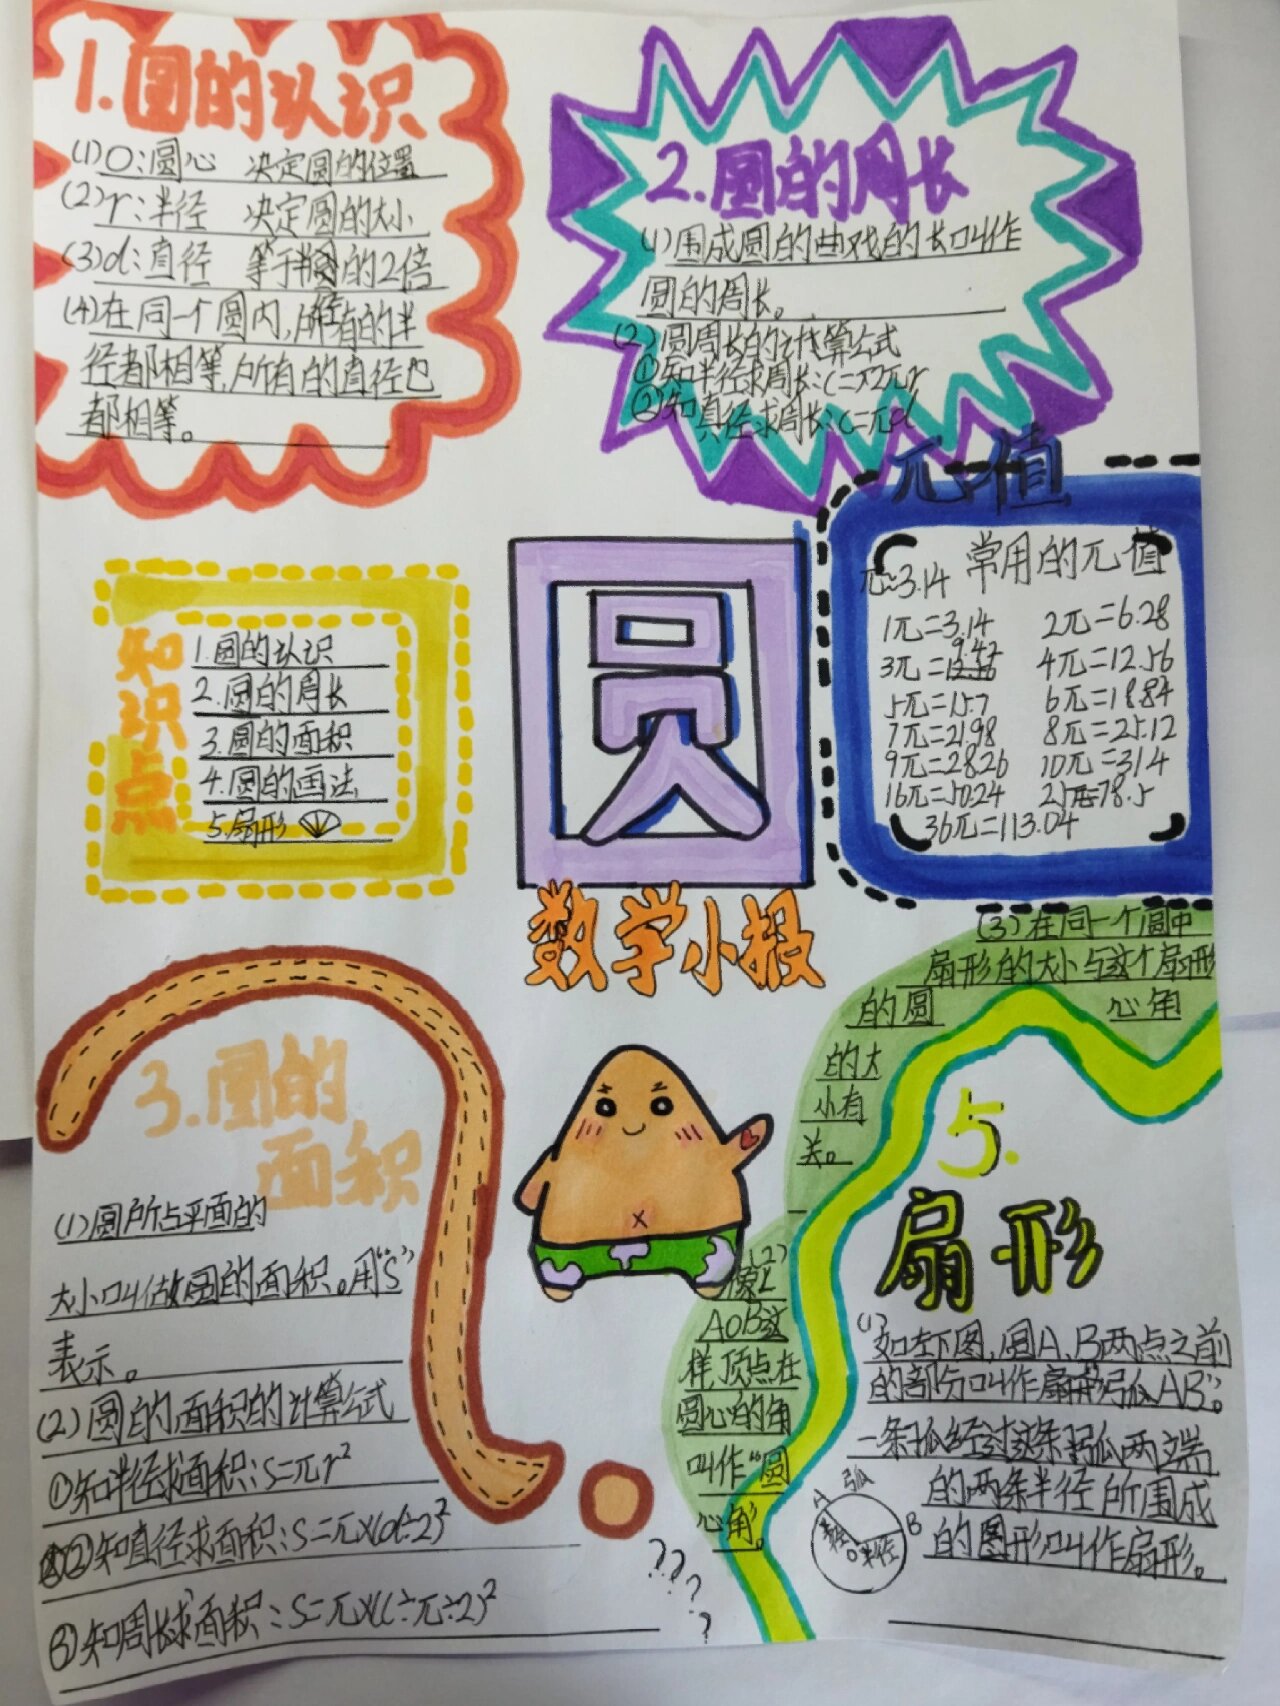 1.圆的认识
(1)O:圆心 决定圆的位置
(2)r:半径 决定圆的大小
(3)d:直径 等于半径的2倍
(4)在同一个圆内,所有的半
径都相等,所有的直径也
都相等。
2.圆的周长
(1)围成圆的曲线的长叫作
圆的周长。
(2)圆周长的计算公式
①知半径求周长:C=2πr
②知直径求周长:C=πd
π值
常用的π值
π≈3.14
1π=3.14 2π=6.28
3π=9.42 4π=12.56
5π=15.7 6π=18.84
7π=21.98 8π=25.12
9π=28.26 10π=31.4
16π=50.24 25π=78.5
36π=113.04
知识点
1.圆的认识
2.圆的周长
3.圆的面积
4.圆的画法
5.扇形
圆
数学小报
3.圆的
面积
(1)圆所占平面的
大小叫做圆的面积。用“S”
表示。
(2)圆的面积的计算公式
①知半径求面积:S=πr²
②知直径求面积:S=π×(d÷2)²
③知周长求面积:S=π×(C÷π÷2)²
????
5.
扇形
(1)如左下图,圆A、B两点之前
的部分叫作扇形“弧AB”。
一条弧经过这条弧两端
的两条半径所围成
的图形叫作扇形。
弧
A
B
半径
O
半径
(2)
像∠
AOB这
样顶点在
圆心的角
叫作“圆
心角”。
(3)在同一个圆中
扇形的大小与这个扇形
的圆 心角
的大
小有
关。